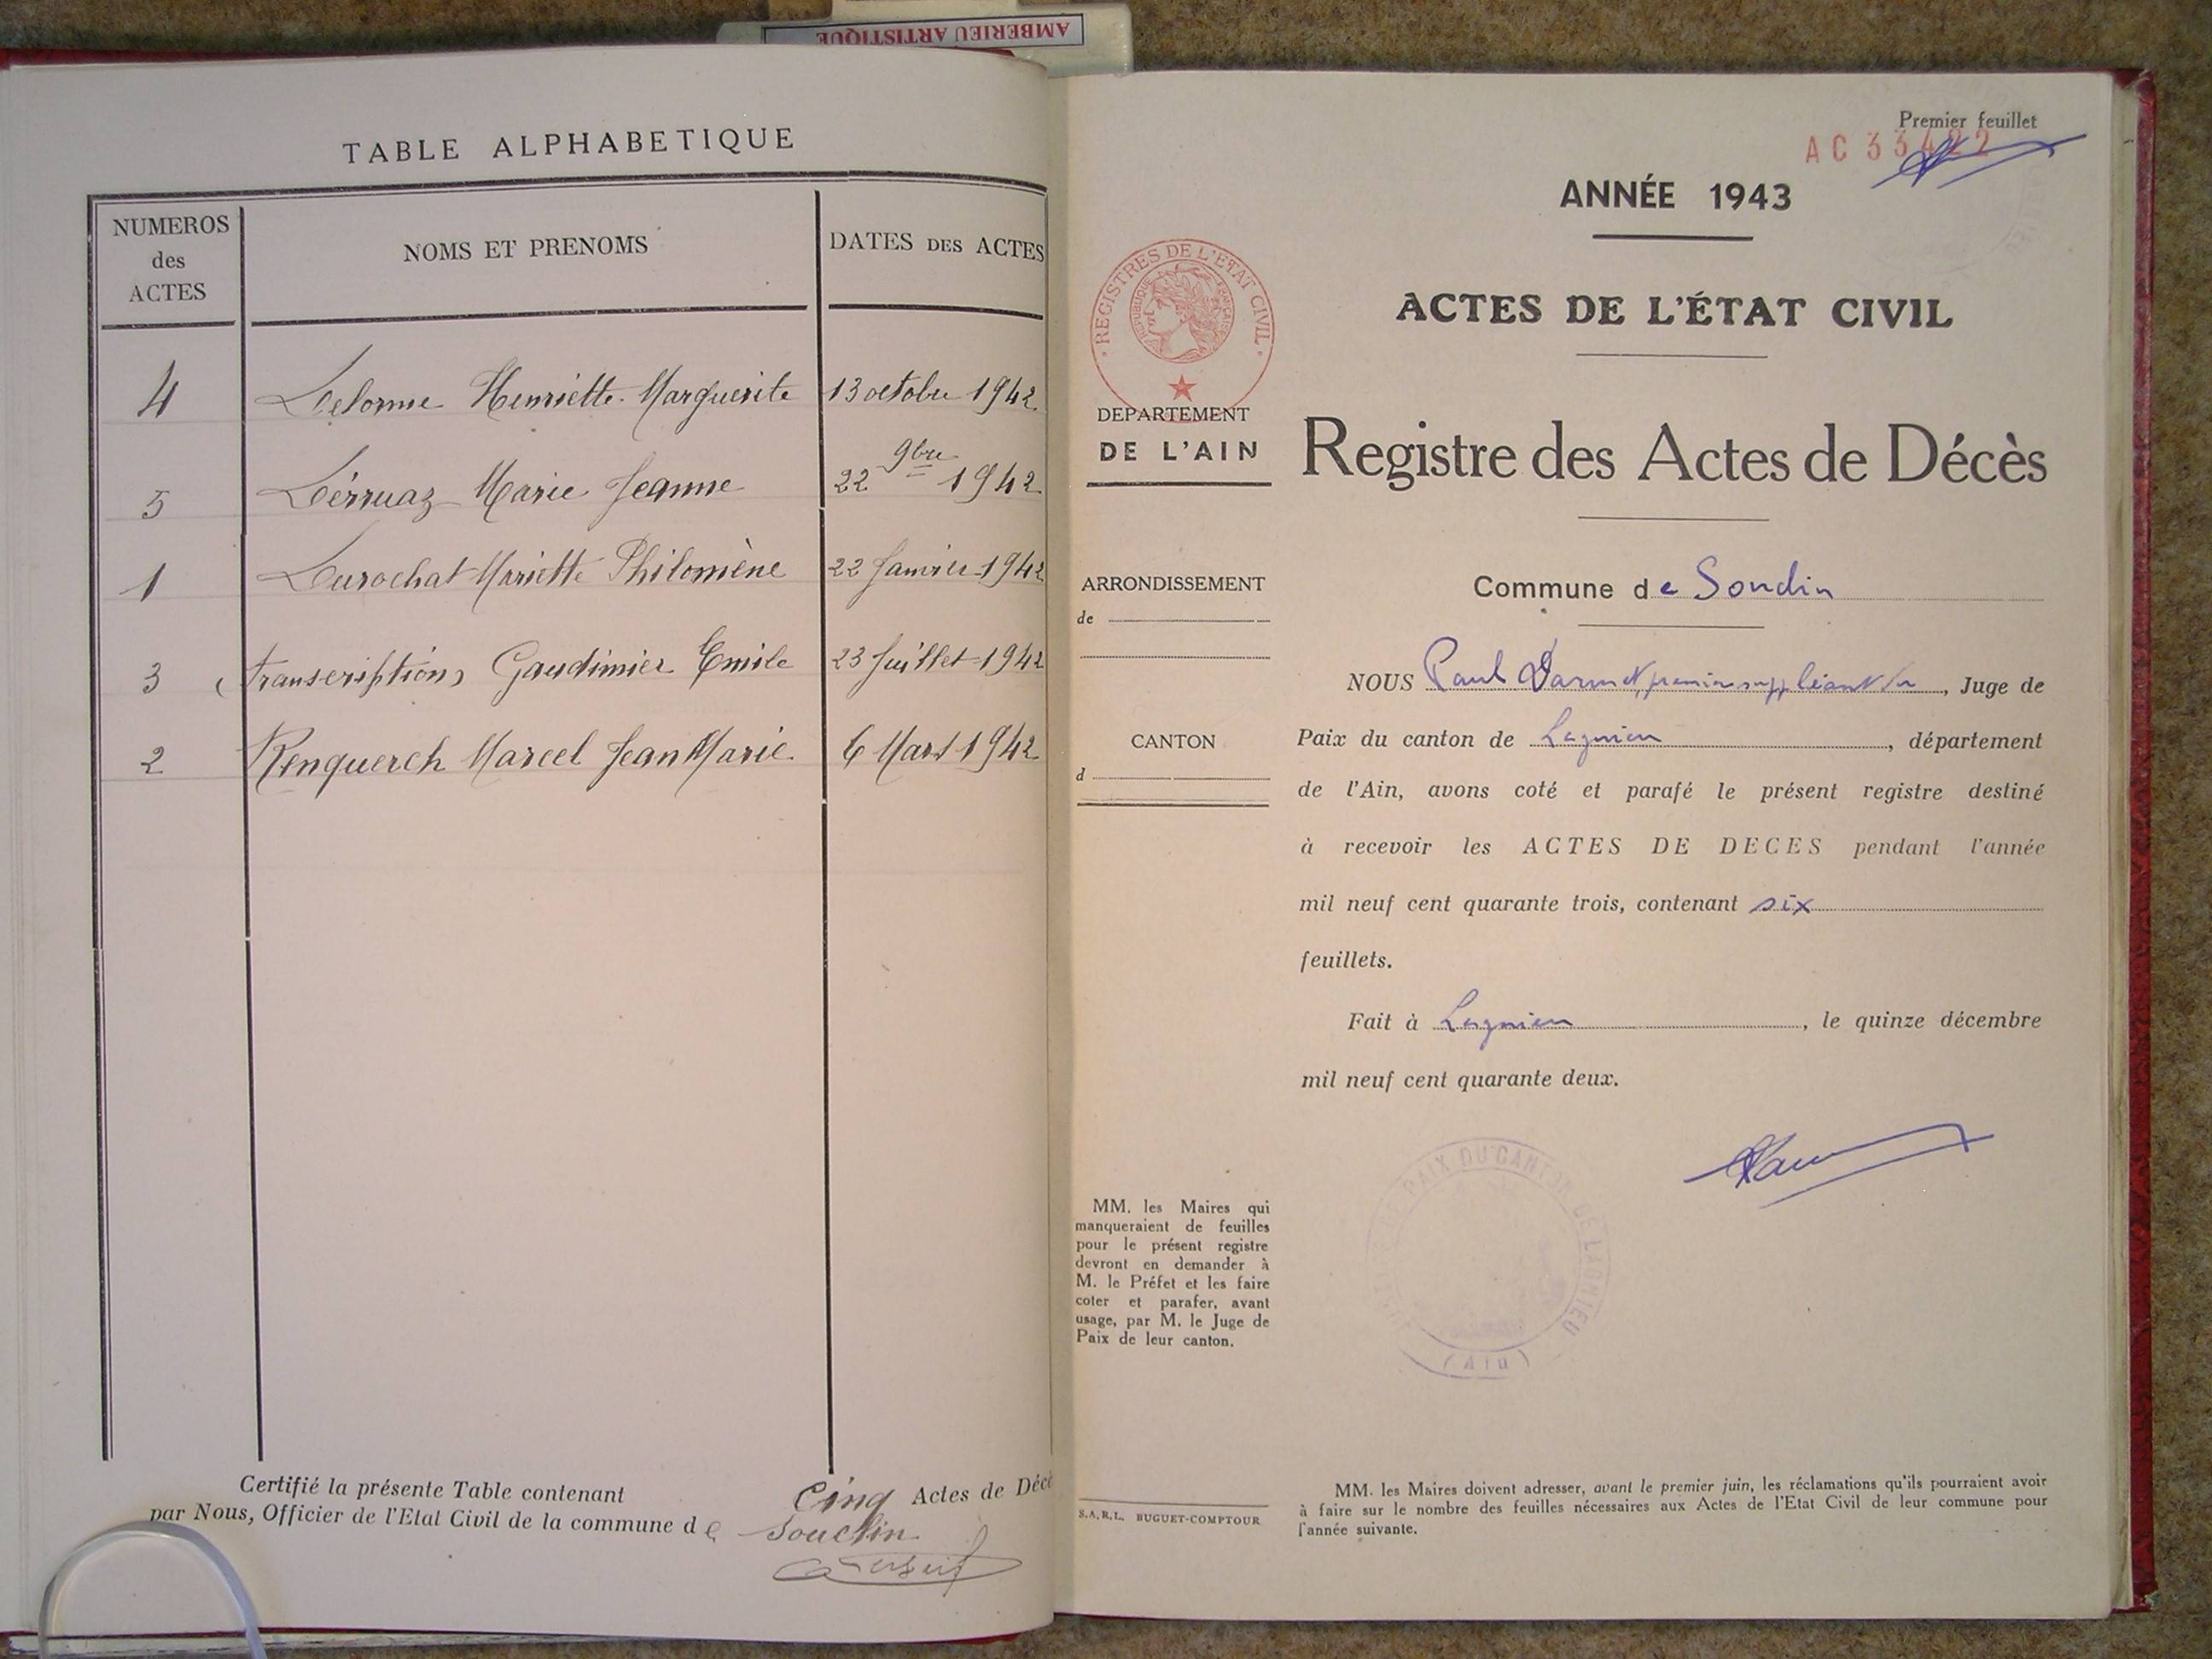 AMBERIEU ARTISTIQUE
TABLE ALPHABETIQUE
NUMEROS des ACTES
NOMS ET PRENOMS
DATES DES ACTES
4 Delorme Henriette Marguerite 13 octobre 1942
5 Dérruaz Marie Jeanne 22 9bre 1942
1 Durochat Mariette Philomène 22 Janvier 1942
3 (transcription) Gaudimier Emile 23 Juillet 1942
2 Renquerch Marcel Jean Marie 6 Mars 1942
Certifié la présente Table contenant Cinq Actes de Décè
par Nous, Officier de l'Etat Civil de la commune de Souclin
Premier feuillet
AC 33422
ANNÉE 1943
ACTES DE L'ÉTAT CIVIL
REGISTRES DE L'ETAT CIVIL
REPUBLIQUE FRANÇAISE
DEPARTEMENT
DE L'AIN
Registre des Actes de Décès
ARRONDISSEMENT
de
Commune de Souclin
NOUS Paul Darmet, premier suppléant du, Juge de
CANTON
d
Paix du canton de Lagnieu, département
de l'Ain, avons coté et parafé le présent registre destiné
à recevoir les ACTES DE DECES pendant l'année
mil neuf cent quarante trois, contenant six
feuillets.
Fait à Lagnieu, le quinze décembre
mil neuf cent quarante deux.
DE PAIX DU CANTON DE LAGNIEU
(Ain)
MM. les Maires qui
manqueraient de feuilles
pour le présent registre
devront en demander à
M. le Préfet et les faire
coter et parafer, avant
usage, par M. le Juge de
Paix de leur canton.
S.A.R.L. BUGUET-COMPTOUR
MM. les Maires doivent adresser, avant le premier juin, les réclamations qu'ils pourraient avoir
à faire sur le nombre des feuilles nécessaires aux Actes de l'Etat Civil de leur commune pour
l'année suivante.